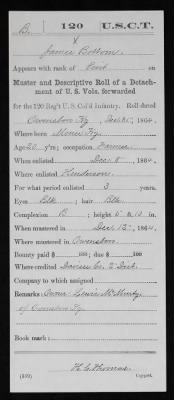 B. | 120 | U.S.C.T.
James Bottom
Appears with rank of Pvt on
Muster and Descriptive Roll of a Detach-
ment of U. S. Vols. forwarded
for the 120 Reg't U. S. Col'd Infantry. Roll dated
Owensboro Ky, 1864.
Where born Ky.
Age 20 y'rs; occupation Farmer
When enlisted Dec 8, 1864.
Where enlisted Henderson
For what period enlisted 3 years.
Eyes Blk; hair Blk
Complexion B; height 5 ft. 10 in.
When mustered in Dec 12, 1864.
Where mustered in Owensboro
Bounty paid $ 100; due $ 100
Where credited Daviess Co. 2 Dist.
Company to which assigned
Remarks: Owner Lewis
of Owensboro Ky.
Book mark:
H. C. Thomas
(339) Copyist.